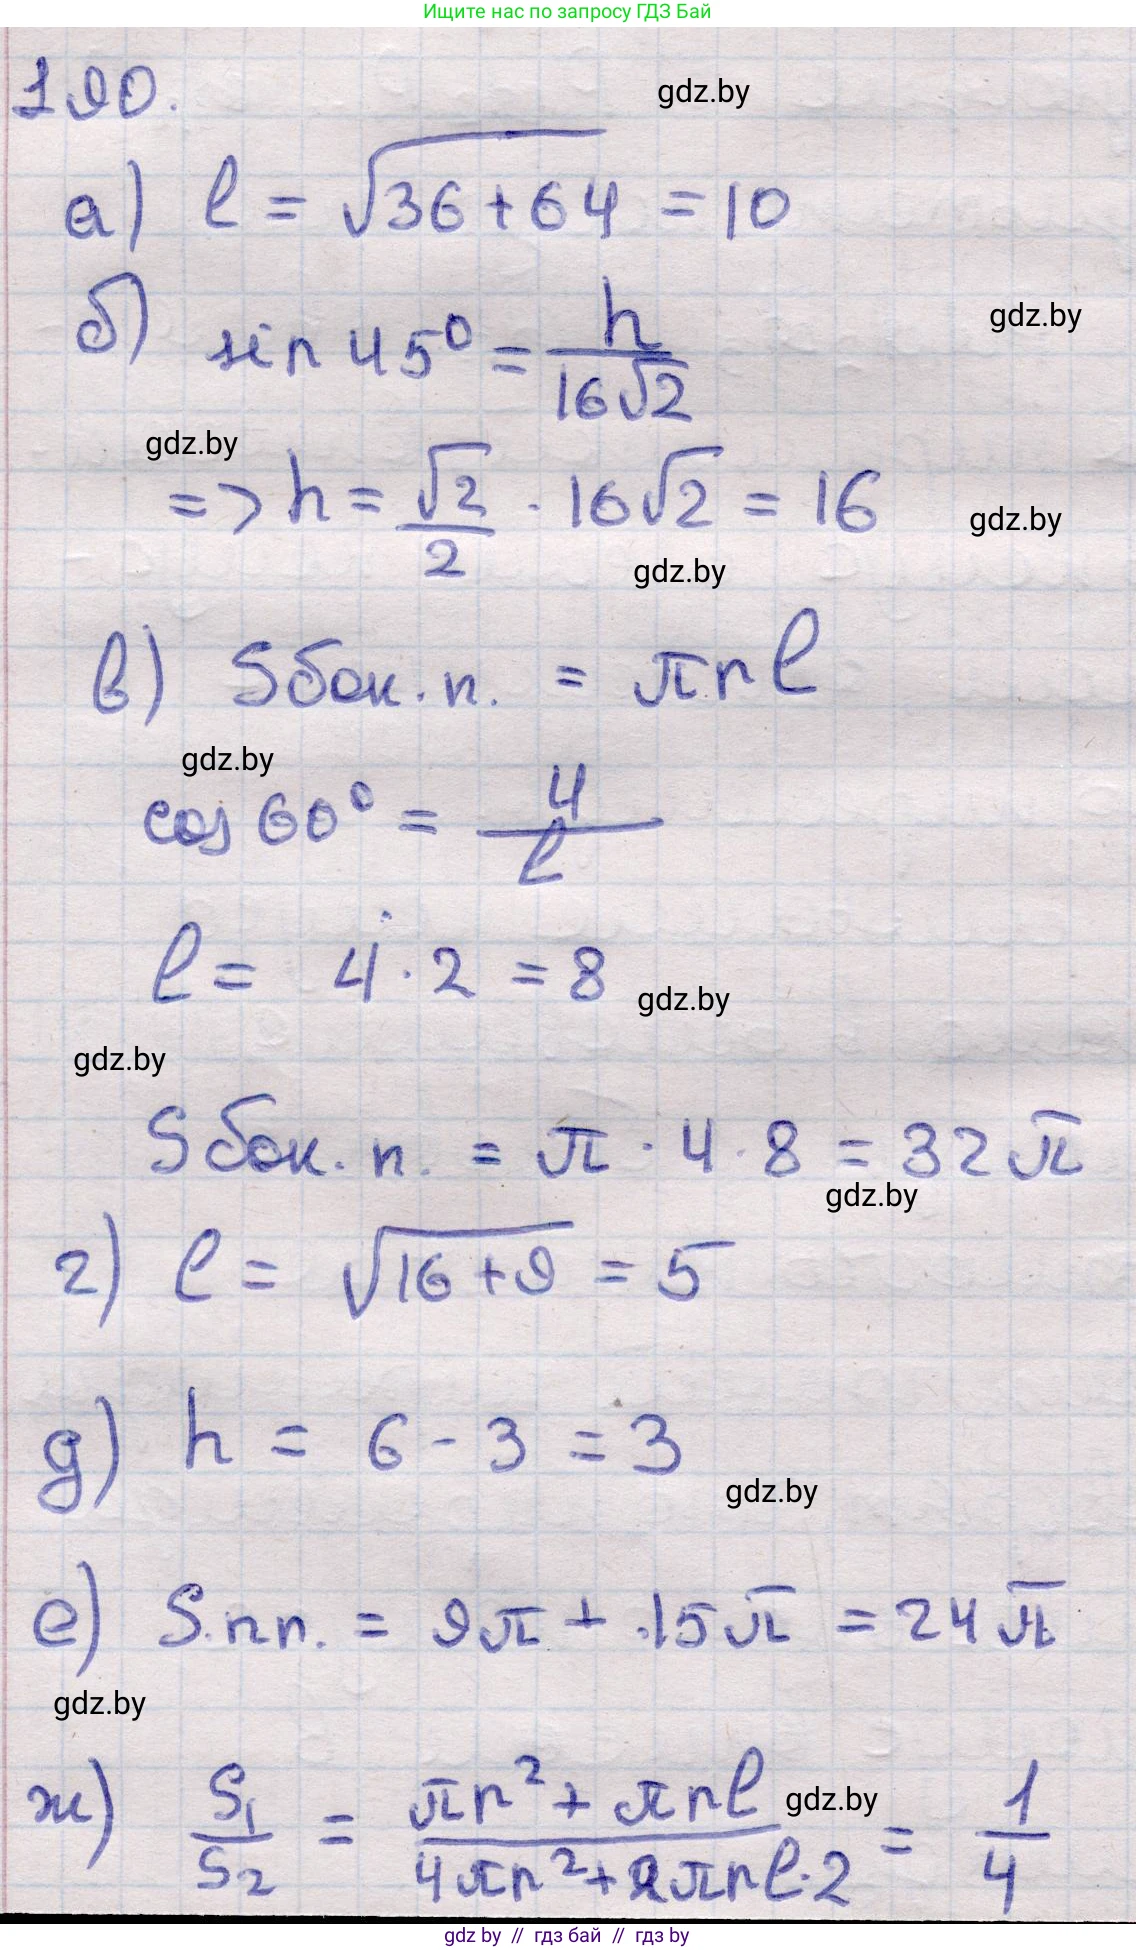 Ищите нас по запросу ГДЗ Бай
190.
gdz.by
а) l = √36+64 = 10
б) sin 45⁰ = h / 16√2
gdz.by
gdz.by
=> h = √2 / 2 · 16√2 = 16
gdz.by
gdz.by
в) Sбок. п. = πrl
gdz.by
cos 60⁰ = 4 / l
l = 4 · 2 = 8
gdz.by
gdz.by
Sбок. п. = π · 4 · 8 = 32π
gdz.by
г) l = √16+9 = 5
д) h = 6 - 3 = 3
gdz.by
е) S.пп. = 9π + 15π = 24π
gdz.by
ж) S₁ / S₂ = πr² + πrl / 4πr² + 2πrl·2 = 1 / 4
gdz.by
gdz by // гдз бай // гдз by